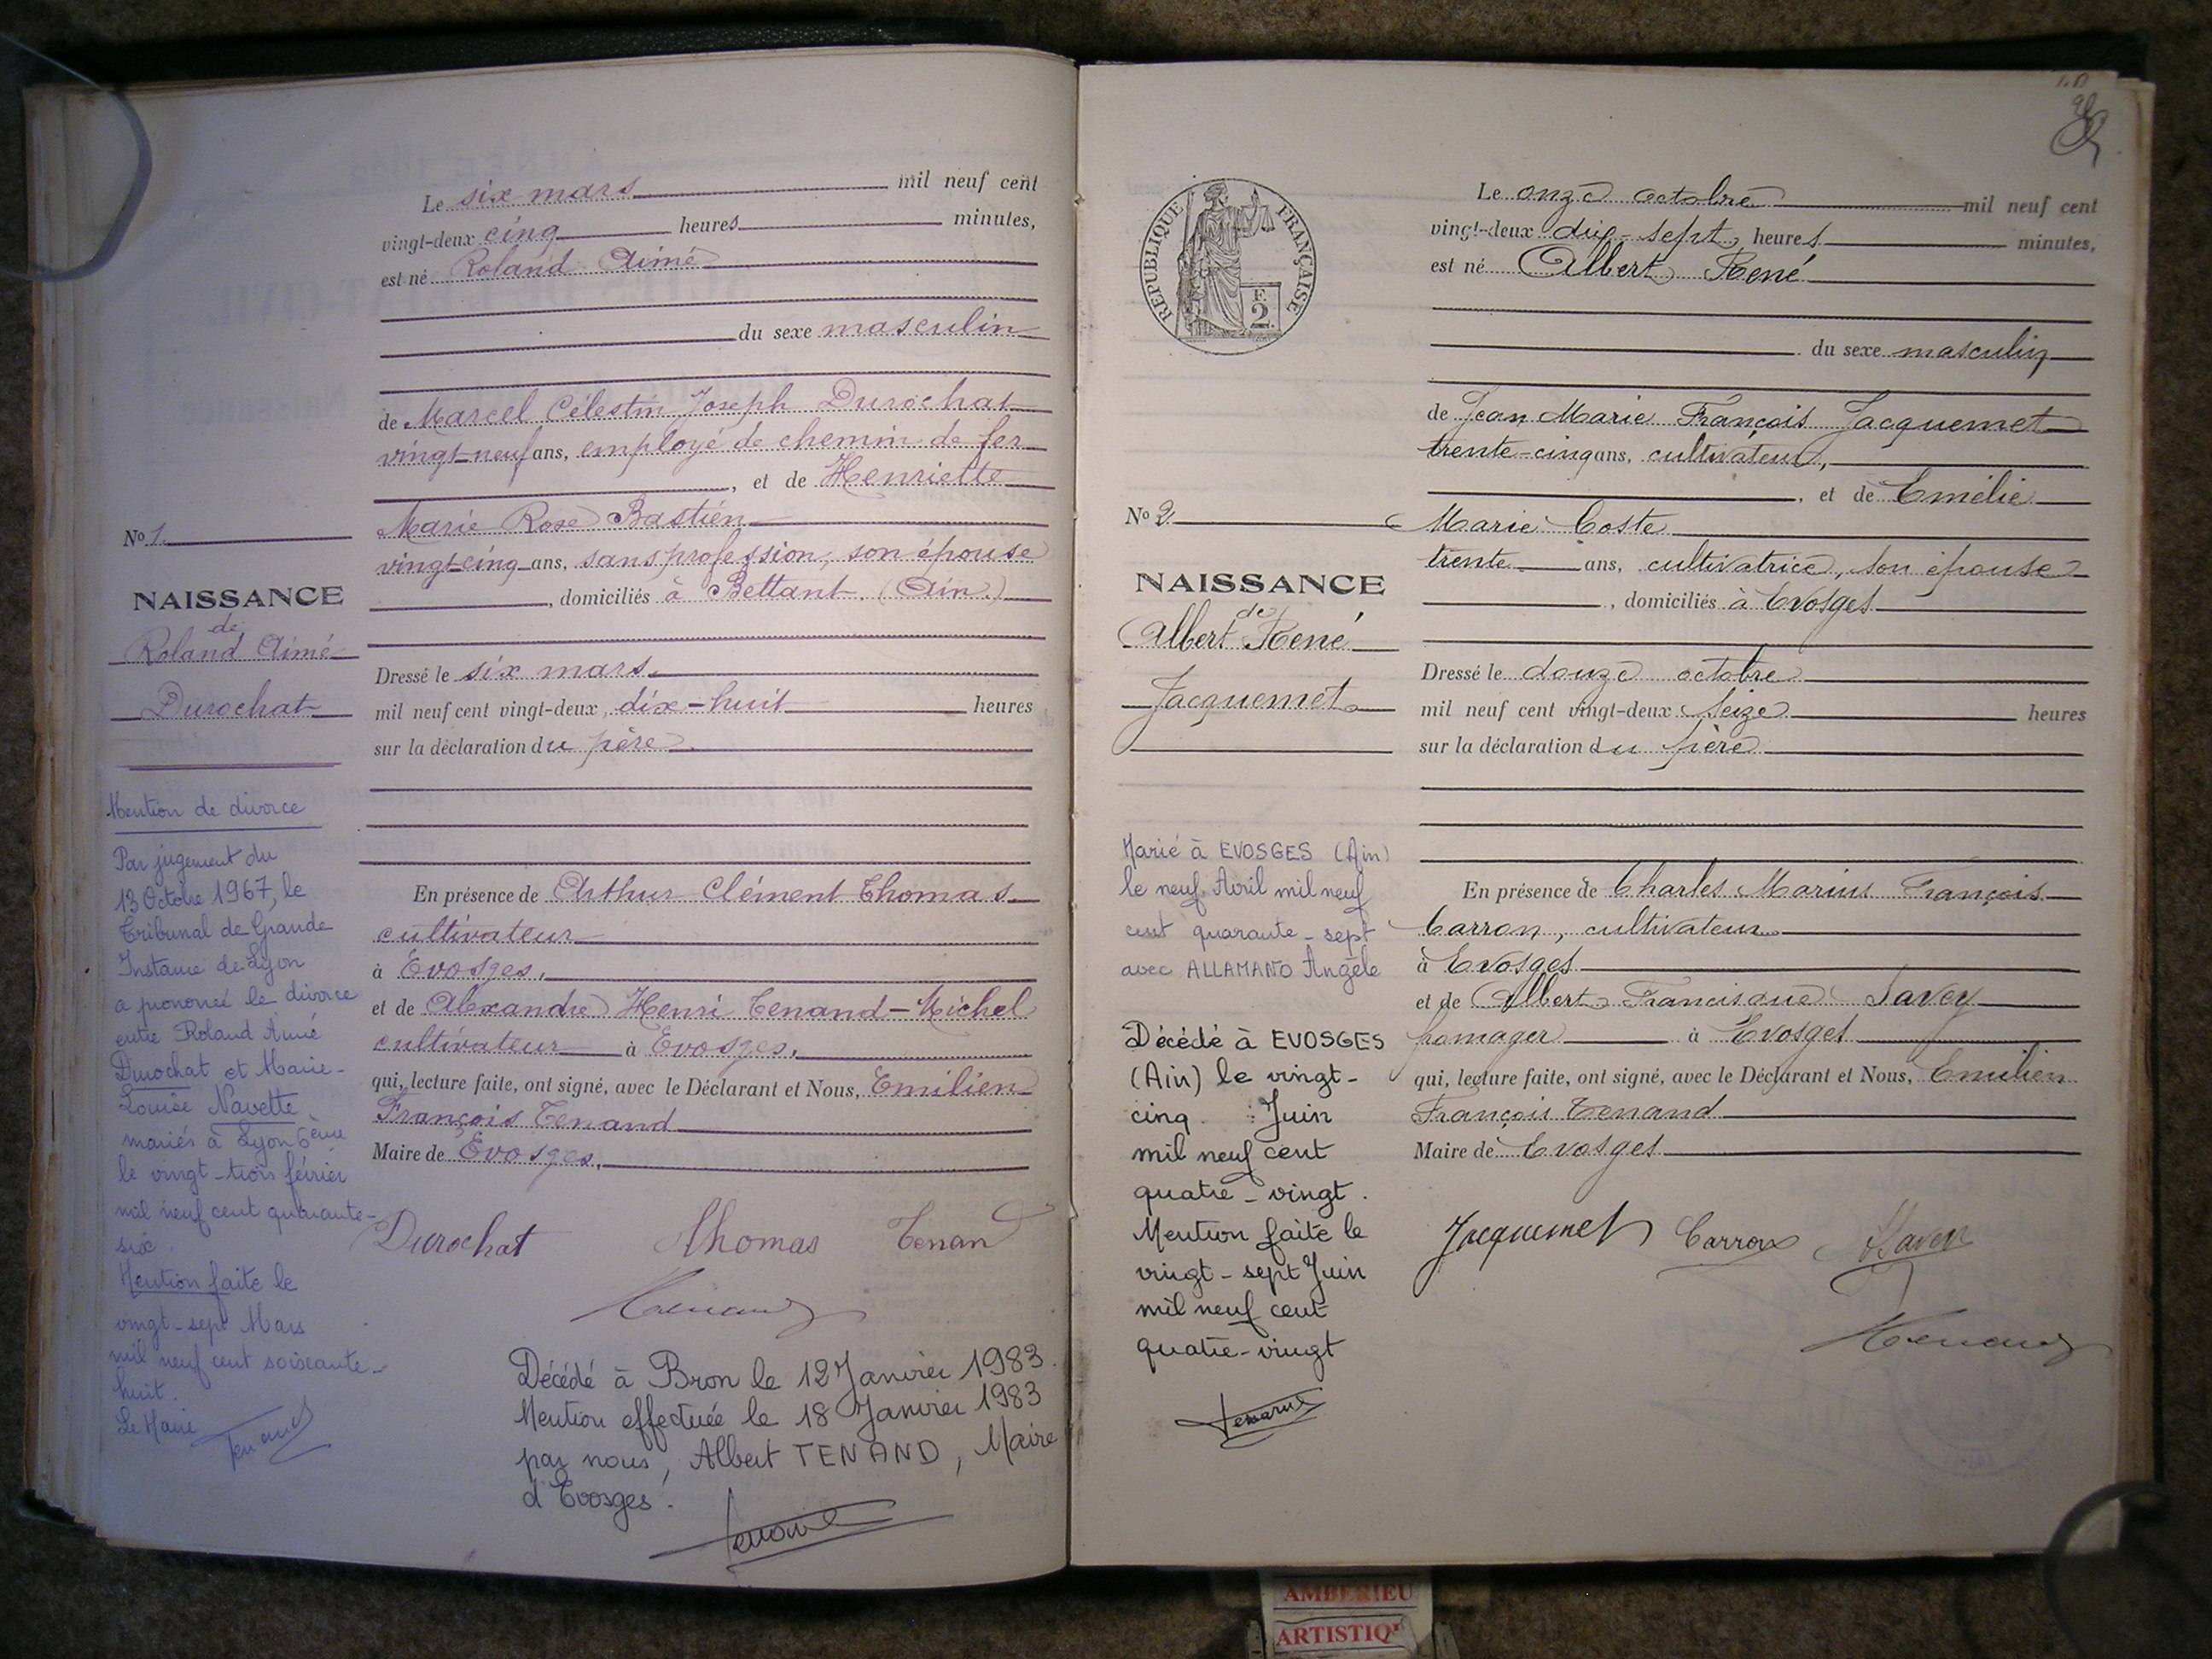 Le six mars mil neuf cent
vingt-deux cinq heures minutes,
est né Roland Aimé
du sexe masculin
de Marcel Célestin Joseph Durochat
vingt-neuf ans, employé de chemin de fer
, et de Henriette
Marie Rose Bastien
vingt-cinq ans, sans profession, son épouse
, domiciliés à Bettant. (Ain.)
Dressé le six mars.
mil neuf cent vingt-deux, dix-huit heures
sur la déclaration du père
En présence de Arthur Clément Thomas
cultivateur
à Evosges,
et de Alexandre Henri Tenand-Michel
cultivateur à Evosges,
qui, lecture faite, ont signé, avec le Déclarant et Nous, Emilien
François Tenand
Maire de Evosges,
Durochat Thomas Tenand
Tenand
Décédé à Bron le 12 Janvier 1983.
Mention effectuée le 18 Janvier 1983
par nous, Albert TENAND, Maire
d'Evosges.
No 1.
NAISSANCE
de
Roland Aimé
Durochat
Mention de divorce
Par jugement du
13 Octobre 1967, le
Tribunal de Grande
Instance de Lyon
a prononcé le divorce
entre Roland Aimé
Durochat et Marie-
Louise Navette
mariés à Lyon 6ème
le vingt-trois février
mil neuf cent quarante-
six.
Mention faite le
vingt-sept Mars
mil neuf cent soixante-
huit.
Le Maire
Tenand
RÉPUBLIQUE FRANÇAISE
F.
2.
Le onze octobre mil neuf cent
vingt-deux dix-sept heures minutes,
est né Albert René
du sexe masculin
de Jean Marie François Jacquemet
trente-cinq ans, cultivateur,
, et de Emélie
Marie Coste
trente ans, cultivatrice, son épouse
, domiciliés à Evosges
Dressé le douze octobre
mil neuf cent vingt-deux seize heures
sur la déclaration du père
En présence de Charles Marius François
Carron, cultivateur
à Evosges
et de Albert Francisque Savey
fromager à Evosges
qui, lecture faite, ont signé, avec le Déclarant et Nous, Emilien
François Tenand
Maire de Evosges
Jacquemet Carron Savey
Tenand
No 2
NAISSANCE
de
Albert René
Jacquemet
Marié à EVOSGES (Ain)
le neuf Avril mil neuf
cent quarante-sept
avec ALLAMANO Angèle
Décédé à EVOSGES
(Ain) le vingt-
cinq Juin
mil neuf cent
quatre-vingt.
Mention faite le
vingt-sept Juin
mil neuf cent
quatre-vingt
Tenand
AMBERIEU
ARTISTIQ